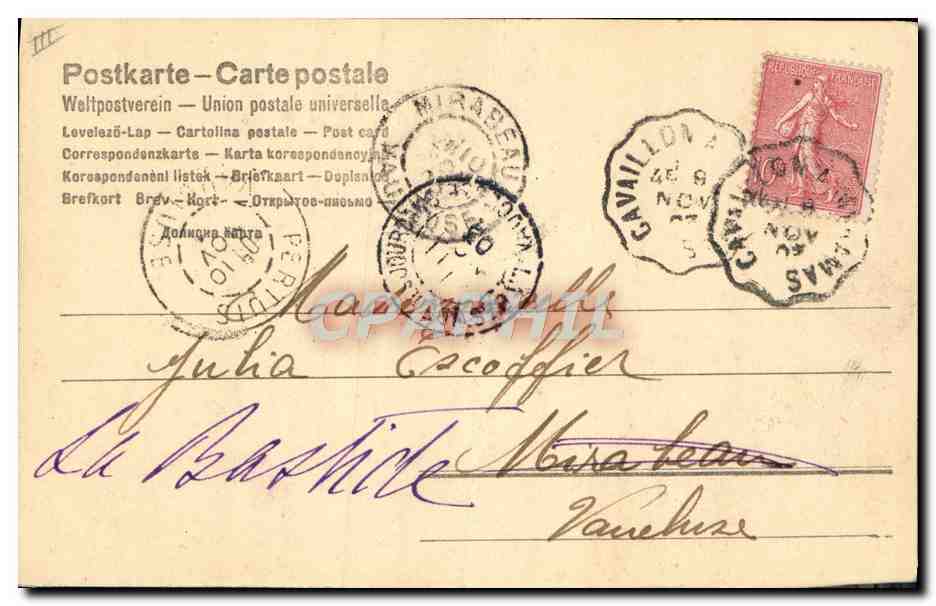 III
Postkarte – Carte postale
Weltpostverein — Union postale universelle
Levelező-Lap — Cartolina postale — Post card
Correspondenzkarte — Karta korespondencyjna
Korespondenční lístek — Briefkaart — Dopisnica
Brefkort Brev-Kort — Открытое-письмо
Дописна карта
MIRABEAU
PERTUIS
CAVAILLON A
45 8
NOV
REPUBLIQUE FRANÇAISE
10
CPARPHIL
Mademoiselle
Julia Escoffier
La Bastide Mirabeau
Vaucluse